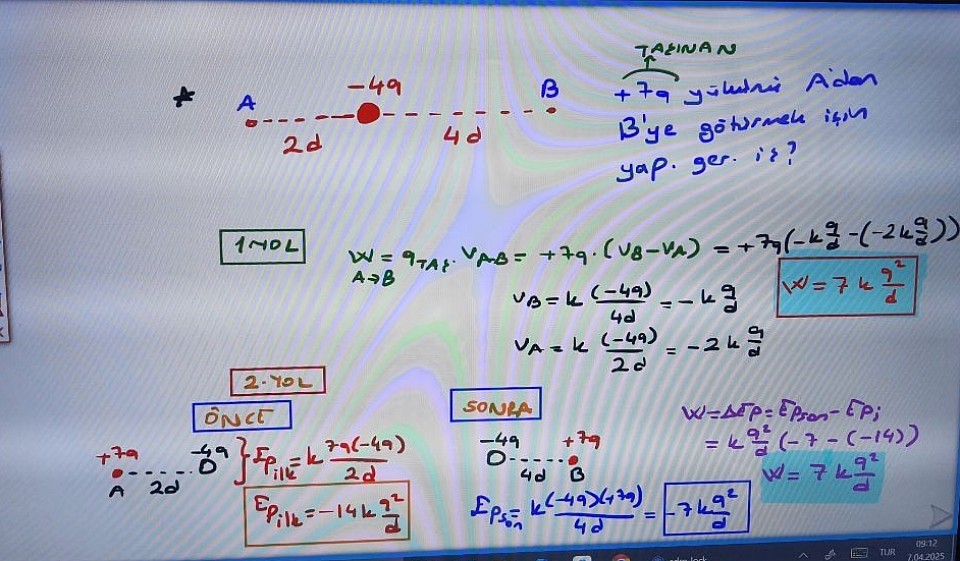 TAŞINAN
* A -4q B
2d 4d
+7q yükünü A'dan
B'ye götürmek için
yap. ger. iş?
1.YOL
W A→B = qTAŞ. VAB = +7q . (VB - VA) = +7q(-k q/d - (-2k q/d))
VB = k (-4q)/4d = -k q/d
W = 7k q²/d
VA = k (-4q)/2d = -2k q/d
2.YOL
ÖNCE
+7q -4q
A 2d
Epilk = k 7q(-4q)/2d
Epilk = -14k q²/d
SONRA
-4q +7q
4d B
Epson = k(-4q)(+7q)/4d = -7k q²/d
W = ΔEp = Epson - Epi
= k q²/d (-7 - (-14))
W = 7k q²/d
TUR
09:12
7.04.2025